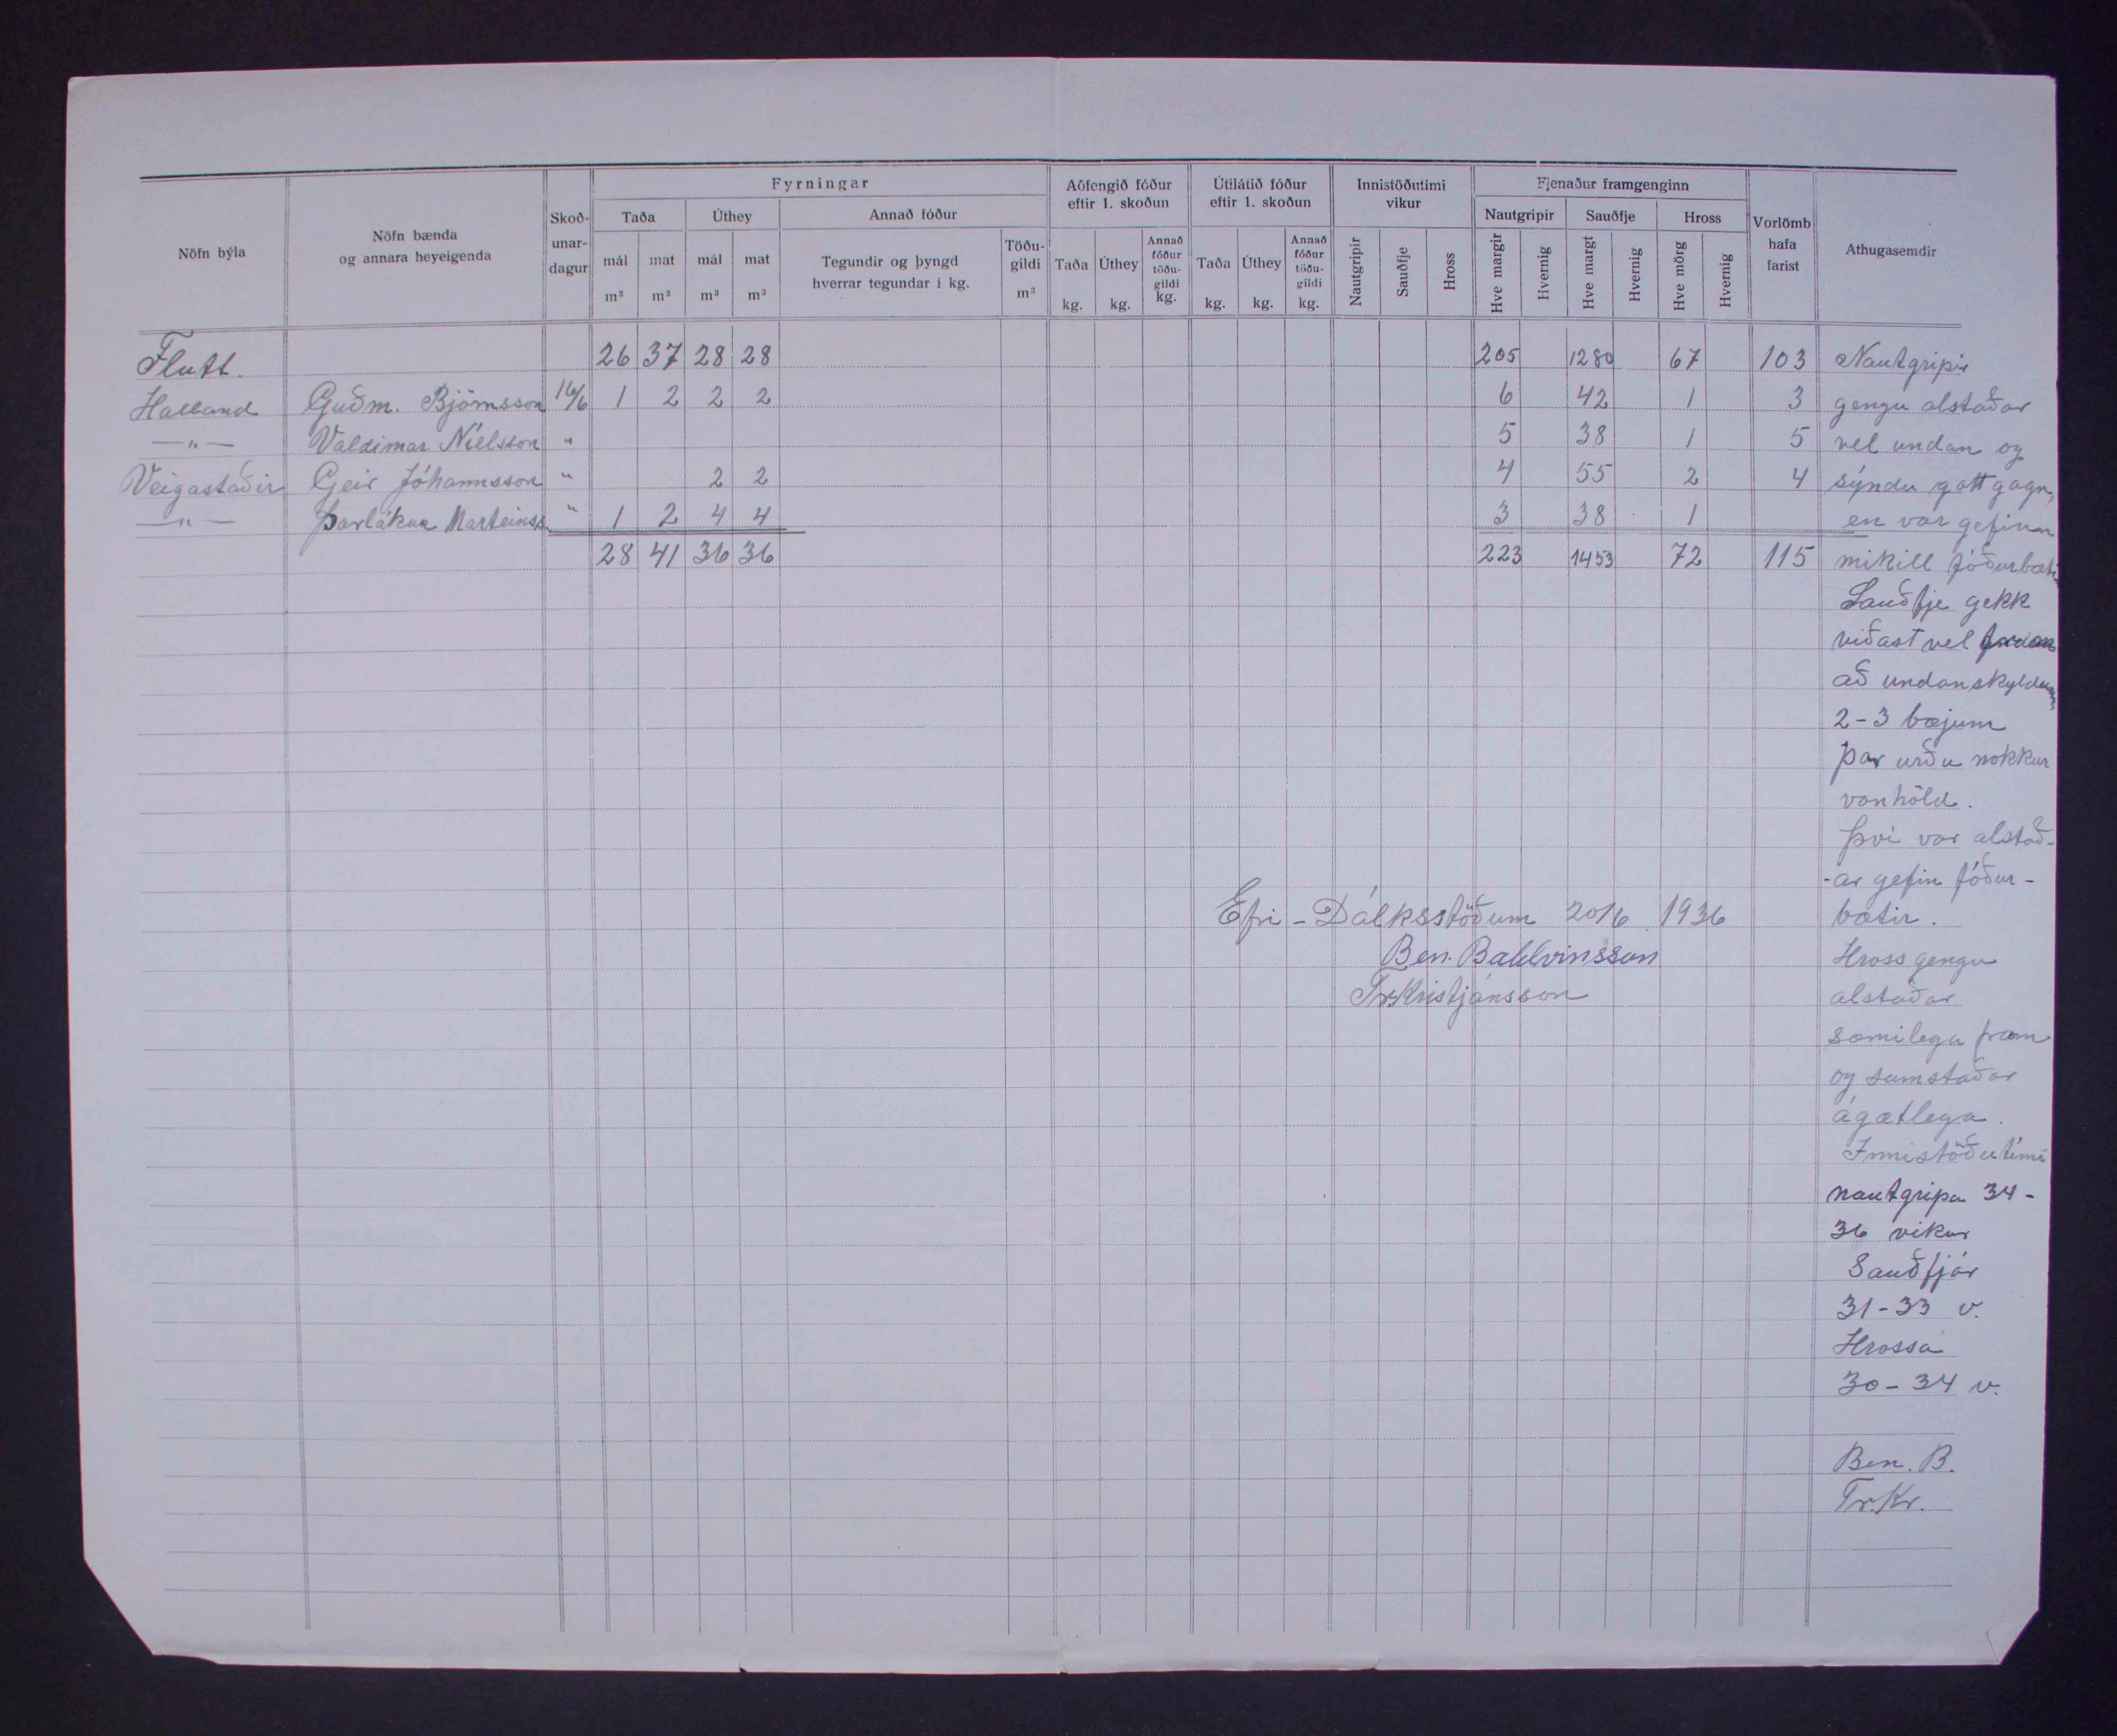 Nöfn býla
Nöfn bænda
og annara heyeigenda
Skoð-
unar-
dagur
Fyrningar
Taða
mál
m³
mat
m³
Úthey
mál
m³
mat
m³
Annað fóður
Tegundir og þyngd
hverrar tegundar í kg.
Töðu-
gildi
m³
Aðfengið fóður
eftir 1. skoðun
Taða
kg.
Úthey
kg.
Annað
fóður
töðu-
gildi
kg.
Útilátið fóður
eftir 1. skoðun
Taða
kg.
Úthey
kg.
Annað
fóður
töðu-
gildi
kg.
Innistöðutími
vikur
Nautgripir
Sauðfje
Hross
Fjenaður framgenginn
Nautgripir
Hve margir
Hvernig
Sauðfje
Hve margt
Hvernig
Hross
Hve mörg
Hvernig
Vorlömb
hafa
farist
Athugasemdir
Flutt. 26 37 28 28 205 1280 67 103 Nautgripir
Halland Guðm. Björnsson 16/6 1 2 2 2 6 42 1 3 gengu alstaðar
—„— Valdimar Níelsson „ 5 38 1 5 vel undan og
Veigastaðir Geir Jóhannsson „ 2 2 4 55 2 4 sýndu gott gagn,
—„— Þorlákur Marteinss. „ 1 2 4 4 3 38 1 en var gefinn
28 41 36 36 223 1453 72 115 mikill fóðurbætir
Sauðfje gekk
viðast vel
að undanskyldum
2-3 bæjum
þar urðu nokkur
vanhöld.
Því var alstað-
-ar gefin fóður-
Efri-Dálksstöðum 20/6 1936 bætir.
Ben. Baldvinsson Hross gengu
Tr Kristjánsson alstaðar
sæmilega fram
og sumstaðar
ágætlega.
Innistöðutími
nautgripa 34-
36 vikur
Sauðfjár
31-33 v.
Hrossa
30-34 v.
Ben. B.
Tr.Kr.